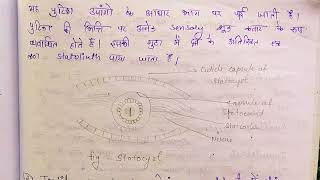 यह पुटिका उपांगो के आधार भाग पर पाई जाती है।
पुटिका की भित्ति पर अनेक sensory शूक कतार के रूप
व्यवस्थित होते हैं। इसकी गुहा में के अतिरिक्त एक
statolith पाया जाता है।
Cuticle capsule of
statocyst
capsule of
statocyst
Nerve
fig statocyst